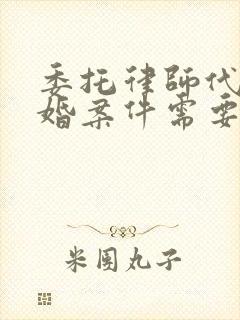 委托律师代
婚案件需要
米团丸子